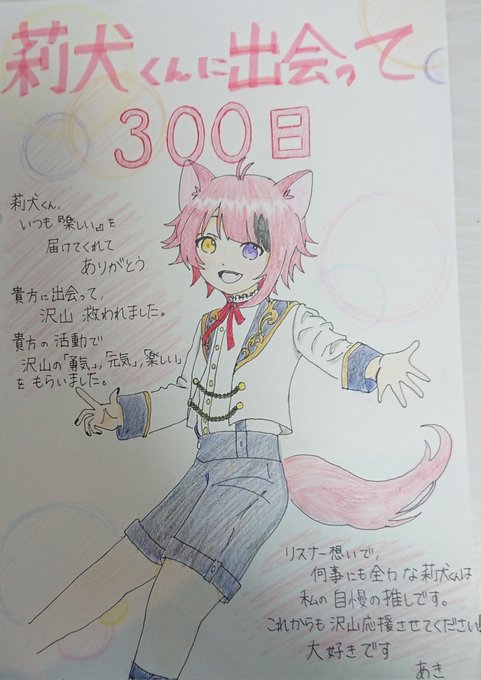 莉犬くんに出会って
300日
莉犬くん、
いつも『楽しい』を
届けてくれて
ありがとう
貴方に出会って、
沢山 救われました。
貴方の活動で
沢山の「勇気」,「元気」,「楽しい」
をもらいました。
リスナー想いで、
何事にも全力な莉犬くんは
私の自慢の推しです。
これからも沢山応援させてください!!
大好きです
あき